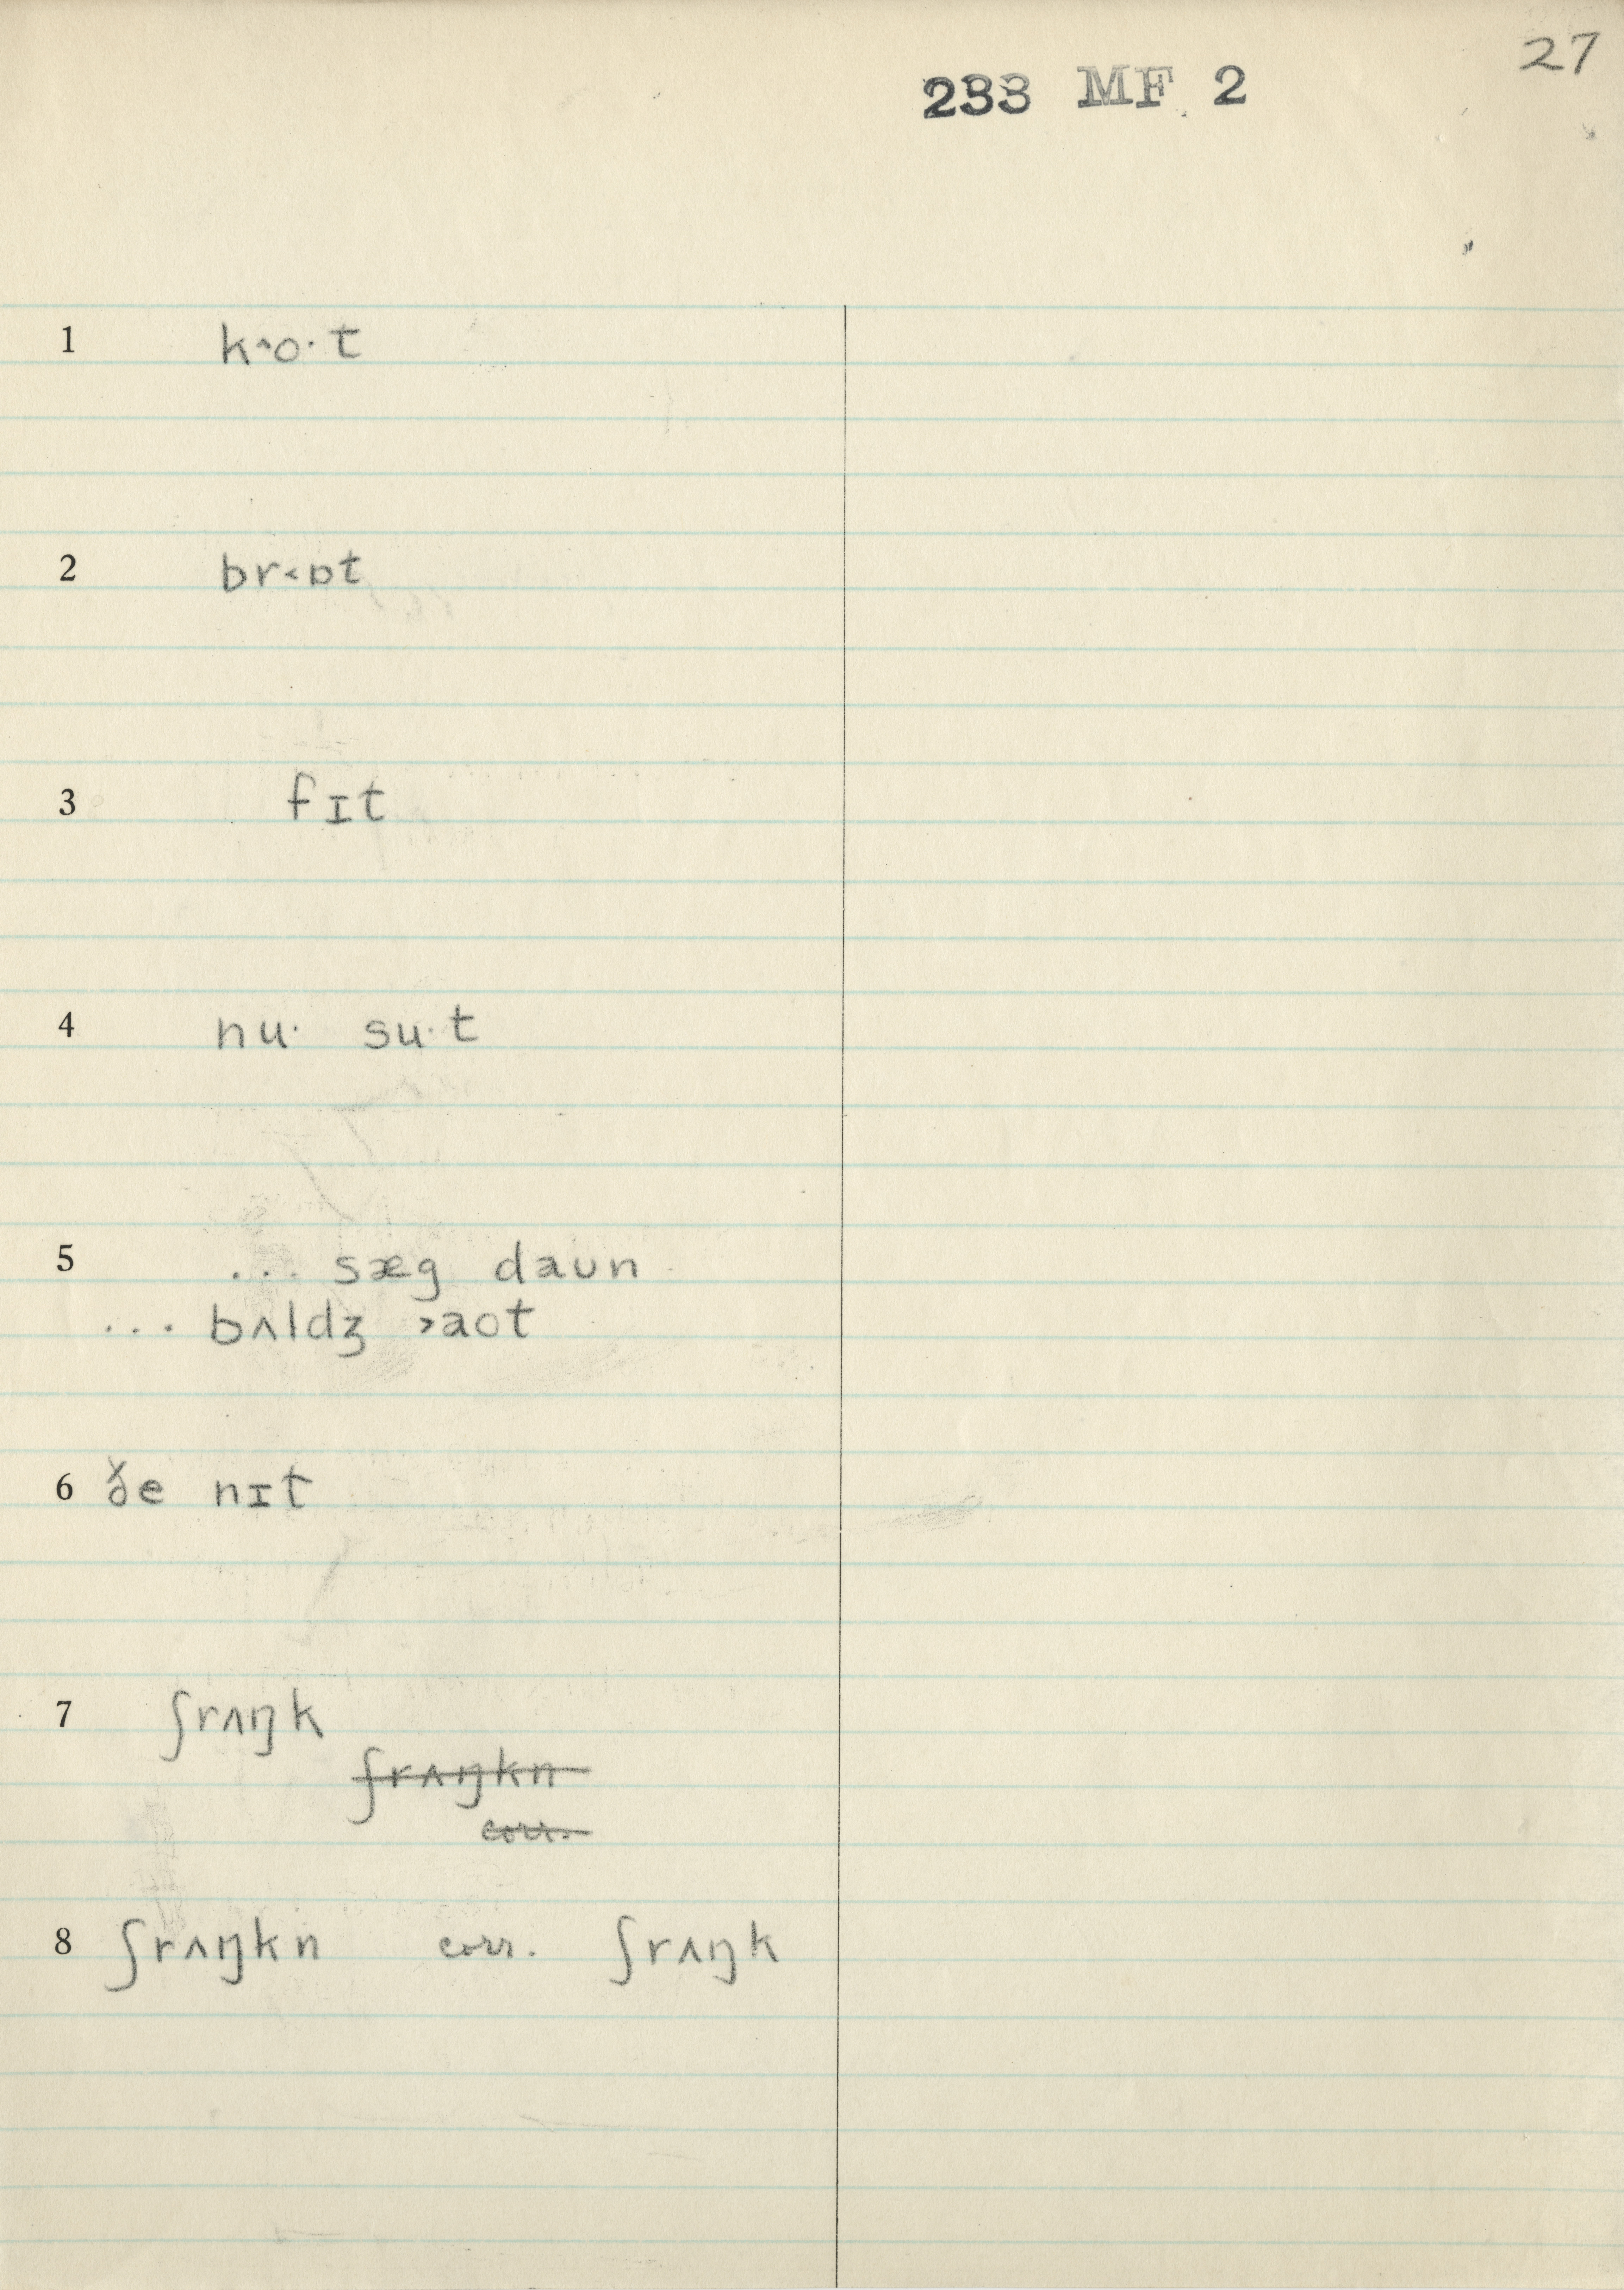 27
233 MF 2
1 k˄o·t
2 br˂ɒt
3 fɪt
4 nu· su·t
5 ... sæg daʊn
... bʌldʒ ˃aot
6 ðe nɪt
7 ʃrʌŋk
ʃrʌŋkn
corr.
8 ʃrʌŋkn corr. ʃrʌŋk